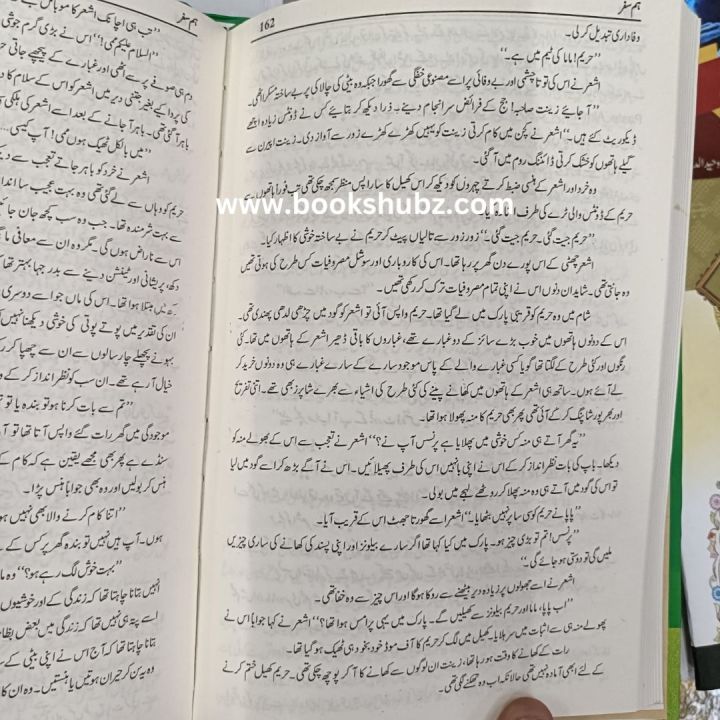 ہم سفر
162
وفاداری تبدیل کر لی۔
”حریم! ماما کی ٹیم میں ہے۔“
اشعر نے اس کی تو تا چشمی اور بے وفائی پر اسے مصنوعی خفگی سے گھورا جبکہ وہ بیٹی کی چالا کی پر بے ساختہ مسکرا اٹھی۔
”آ جائیے زینت صاحبہ! جج کے فرائض سرانجام دیجئے۔ ذرا دیکھ کر بتائیے کس نے ڈونٹس زیادہ اچھے
ڈیکوریٹ کئے ہیں۔“ اشعر نے کچن میں کام کرتی زینت کو یہیں کھڑے کھڑے زور سے آواز دی۔ زینت ایپرن سے
گیلے ہاتھوں کو خشک کرتی ڈائننگ روم میں آ گئی۔
وہ خرد اور اشعر کے ہنسی ضبط کرتے چہروں کو دیکھ کر اس کھیل کا سارا پس منظر سمجھ چکی تھی تب فوراً ہاتھوں سے
حریم کے ڈونٹس والی ٹرے کی طرف اشارہ کیا۔
www.bookshubz.com
”حریم جیت گئی۔ حریم جیت گئی۔“ زور زور سے تالیاں پیٹ کر حریم نے بے ساختہ خوشی کا اظہار کیا۔
اشعر چھٹی کے اس پورے دن گھر پر رہا تھا۔ اس کی کاروباری اور سوشل مصروفیات کس طرح کی ہوتی تھیں
وہ جانتی تھی۔ شاید ان دنوں اس نے اپنی تمام مصروفیات ترک کر رکھی تھیں۔
شام میں وہ حریم کو قریبی پارک میں لے گیا تھا۔ حریم واپس آئی تو اشعر کو گود میں چڑھی لدھی پھندی تھی۔
اس کے دونوں ہاتھوں میں خوب بڑے سائز کے دو غبارے تھے، غباروں کا باقی ڈھیر اشعر کے ہاتھوں میں تھا۔ کئی
رنگوں اور کئی طرح کے لگتا تھا گویا کسی غبارے والے کے پاس موجود سارے کے سارے غبارے ہی وہ دونوں خرید کر
لے آئے ہوں۔ ساتھ ہی اشعر کے ہاتھوں میں کھانے پینے کی کئی طرح کی اشیاء سے بھرے شاپرز بھی تھے۔ اتنی تفریح
اور بھرپور شاپنگ کر کے آئی تھی پھر بھی حریم کا منہ پھولا ہوا تھا۔
”یہ گھر آتے ہی منہ کس خوشی میں پھلایا ہے پرنسس آپ نے؟“ اشعر نے تعجب سے اس کے پھولے منہ کو
دیکھا۔ باپ کی بات نظر انداز کر کے اس نے اپنی بانہیں اس کی طرف پھیلائیں۔ اس نے آگے بڑھ کر اسے گود میں لیا
تو اس کی گود میں آتے ہی وہ منہ پھلا کر روٹھے لہجے میں بولی۔
”پاپا نے حریم کو سی سا پر نہیں بٹھایا۔“ اشعر اسے گھورتا جھٹ اس کے قریب آیا۔
”پرنسس! تم تو بڑی چیز ہو۔ پارک میں کیا کہا تھا اگر سارے بیلونز اور اپنی پسند کی کھانے کی ساری چیزیں
ملیں گی تو دوستی ہو جائے گی۔“
اشعر نے اسے جھولوں پر زیادہ دیر بیٹھنے سے روکا ہوگا اور اس چیز سے وہ خفا تھی۔
”اب پاپا، ماما اور حریم بیلونز سے کھیلیں گے۔ پارک میں یہی پرامس ہوا تھا؟“ اشعر نے کہا جواباً اس نے
پھولے منہ ہی سے اثبات میں سر ہلایا۔ کھیل میں لگ کر حریم کا آف موڈ خود بخود ہی ٹھیک ہو گیا تھا۔
رات کے کھانے کا وقت ہو رہا تھا، زینت ان لوگوں سے کھانے کا آ کر پوچھ چکی تھی۔ حریم کھیل ختم کرنے
کے لئے ابھی آمادہ نہیں تھی حالانکہ اب وہ تھکنے لگی تھی۔
ہم سفر
”تب ہی اچانک اشعر کا موبائل
”السلام علیکم ممی!“ اس نے بڑی گرم جوشی
دم ہی صوفے پر سے اٹھی اور غبارے کے پیچھے جاتی
کی پروا کیے بغیر جتنی دیر میں اشعر کو اس کے سلام کا
باہر آ گئی تھی۔ باہر آ جانے کے بعد اسے اشعر کی ہلکی
”میں بالکل ٹھیک ہوں ممی! آپ کیسی
اشعر نے خرد کو باہر جاتے تعجب سے
حریم کو وہاں سے لے گئی تھی وہ بہت عجیب سا
سے بہت شرمندہ تھا۔ جب وہ سب کچھ جان
اس سے ناراض ہوں گی۔ مگر وہ ان سے معافی
دکھ، پریشانی اور ٹینشن دینے سے بدر جہا بہتر تھا
میں مبتلا ہوا تھا۔ اس کی ماں جو اسے دوسری
ان کی تقدیر میں پوتے پوتی کی خوشی دیکھنا نہیں
بہو نے پچھلے چار سالوں سے ان سے چھپا کر
خیال آ رہے تھے۔ ان سب کو نظر انداز کر کے
”تم سے بات کرنا ہو تو بندہ یا تو
موجودگی میں گھر رات گئے واپس آتا تھا تو
سنڈے ہے پھر بھی مجھے یقین ہے کہ کام کے
ہنس کر بولیں اور وہ بھی جواباً ہنس پڑا۔
”اتنا کام کرنے والا بھی نہیں
ہوں۔ آپ ہیں نہیں تو بندہ گھر پر کس کے
”بہت خوش لگ رہے ہو؟“ وہ
انہیں بتانا چاہتا تھا کہ زندگی کے اور خوشیوں
اسے پتہ ہی نہیں تھا کہ زندگی میں بعض
بتانا چاہتا تھا کہ آج اس نے اپنی بیٹی کے
وہ یہ سن کر حیران ہوتیں یا ہنستیں۔ وہ ان کا